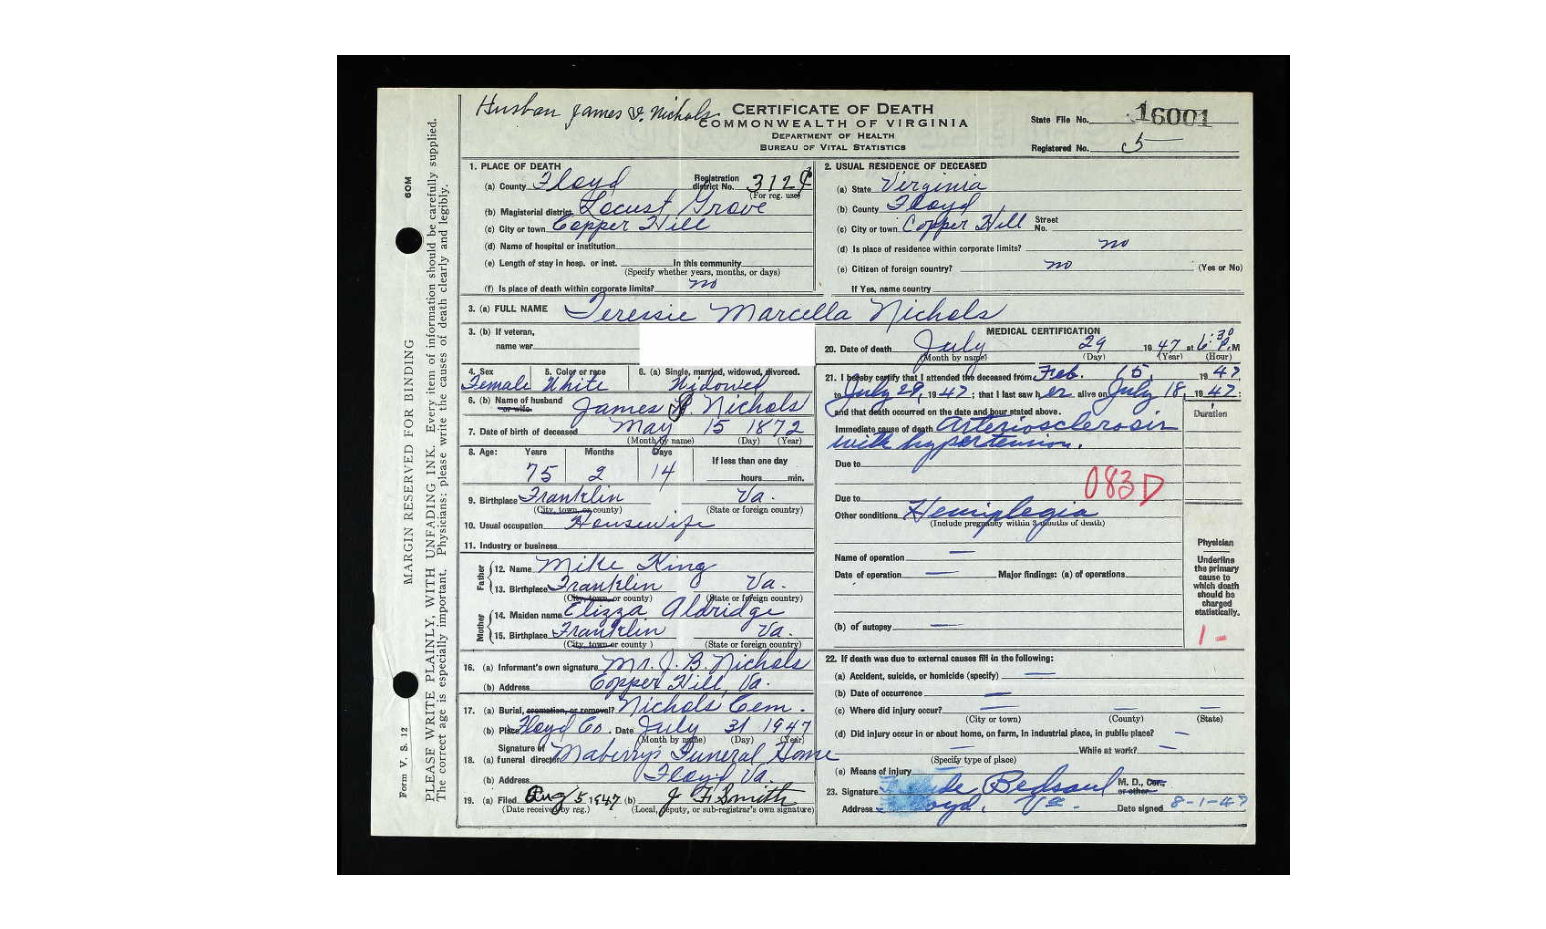 Husban James V. Nichols
CERTIFICATE OF DEATH
COMMONWEALTH OF VIRGINIA
DEPARTMENT OF HEALTH
BUREAU OF VITAL STATISTICS
State File No. 16001
Registered No. 5
60M
MARGIN RESERVED FOR BINDING
PLEASE WRITE PLAINLY, WITH UNFADING INK. Every item of information should be carefully supplied.
The correct age is especially important. Physicians: please write the causes of death clearly and legibly.
Form V. S. 12
1. PLACE OF DEATH
(a) County Floyd Registration district No. 312
(For reg. use)
(b) Magisterial district Locust Grove
(c) City or town Copper Hill
(d) Name of hospital or institution
(e) Length of stay in hosp. or inst. In this community
(Specify whether years, months, or days)
(f) Is place of death within corporate limits? no
2. USUAL RESIDENCE OF DECEASED
(a) State Virginia
(b) County Floyd
(c) City or town Copper Hill Street No.
(d) Is place of residence within corporate limits? no
(e) Citizen of foreign country? no (Yes or No)
If Yes, name country
3. (a) FULL NAME Teressie Marcella Nichols
3. (b) If veteran,
name war
4. Sex 5. Color or race 6. (a) Single, married, widowed, divorced.
Female White Widowed
6. (b) Name of husband or wife James Nichols
7. Date of birth of deceased May 15 1872
(Month by name) (Day) (Year)
8. Age: Years Months Days If less than one day
75 2 14 hours min.
9. Birthplace Franklin Va.
(City, town, or county) (State or foreign country)
10. Usual occupation Housewife
11. Industry or business
Father
12. Name Mike King
13. Birthplace Franklin Va.
(City, town, or county) (State or foreign country)
Mother
14. Maiden name Elizza Aldridge
15. Birthplace Franklin Va.
(City, town or county) (State or foreign country)
16. (a) Informant's own signature Mr. J. B. Nichols
(b) Address Copper Hill, Va.
17. (a) Burial, cremation, or removal? Nichols Cem.
(b) Place Floyd Co. Date July 31 1947
(Month by name) (Day) (Year)
18. (a) Signature of funeral director Maberry's Funeral Home
(b) Address Floyd Va.
19. (a) Filed Aug 5 1947 (b) J F Smith
(Date received by reg.) (Local, deputy, or sub-registrar's own signature)
MEDICAL CERTIFICATION
20. Date of death July 29 1947 at 6:30 P.M
(Month by name) (Day) (Year) (Hour)
21. I hereby certify that I attended the deceased from Feb. 15, 1947
to July 29, 1947; that I last saw her alive on July 18, 1947;
and that death occurred on the date and hour stated above. Duration
Immediate cause of death Arteriosclerosis
with hypertension.
Due to
083D
Due to
Other conditions Hemiplegia
(Include pregnancy within 3 months of death)
Name of operation —
Date of operation — Major findings: (a) of operations
(b) of autopsy —
Physician
Underline
the primary
cause to
which death
should be
charged
statistically.
1-
22. If death was due to external causes fill in the following:
(a) Accident, suicide, or homicide (specify) —
(b) Date of occurrence —
(c) Where did injury occur? — — —
(City or town) (County) (State)
(d) Did injury occur in or about home, on farm, in industrial place, in public place? —
— While at work? —
(Specify type of place)
(e) Means of injury —
23. Signature Bedsaul M. D., Cor., or other
Address Floyd, Va. Date signed 8-1-47